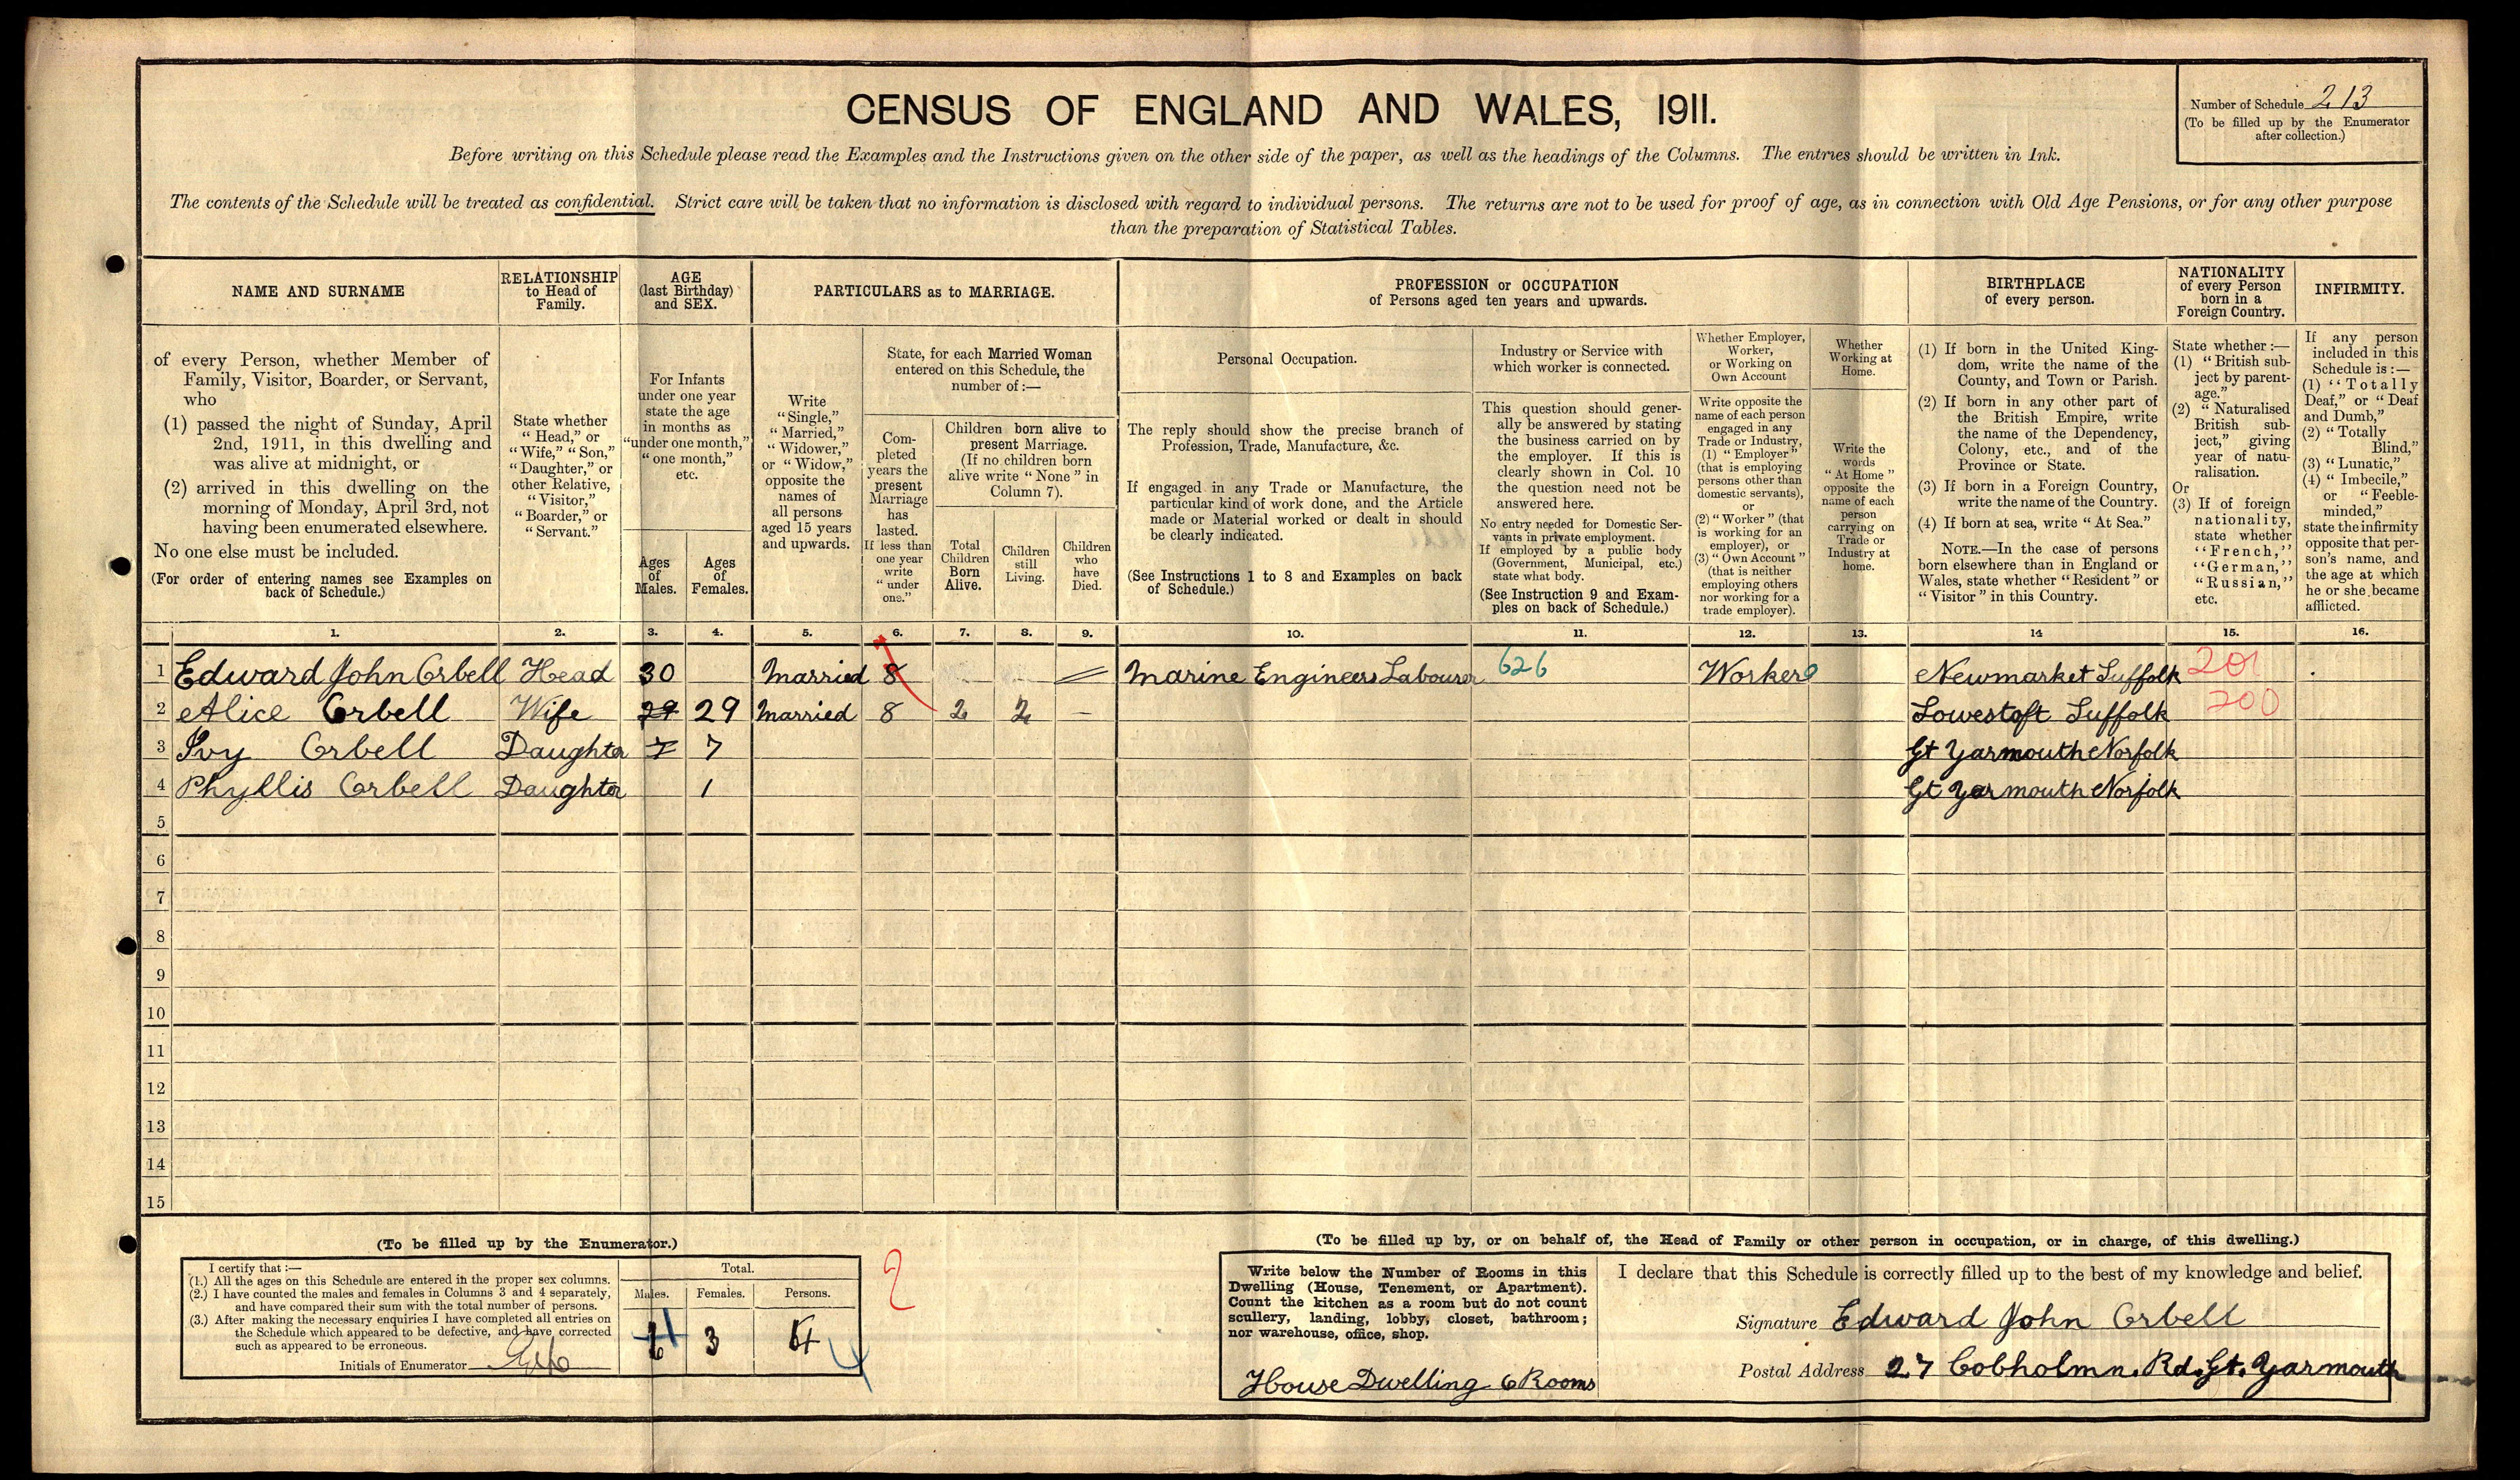 CENSUS OF ENGLAND AND WALES, 1911.
Number of Schedule 213
(To be filled up by the Enumerator
after collection.)
Before writing on this Schedule please read the Examples and the Instructions given on the other side of the paper, as well as the headings of the Columns. The entries should be written in Ink.
The contents of the Schedule will be treated as confidential. Strict care will be taken that no information is disclosed with regard to individual persons. The returns are not to be used for proof of age, as in connection with Old Age Pensions, or for any other purpose
than the preparation of Statistical Tables.
NAME AND SURNAME
of every Person, whether Member of
Family, Visitor, Boarder, or Servant,
who
(1) passed the night of Sunday, April
2nd, 1911, in this dwelling and
was alive at midnight, or
(2) arrived in this dwelling on the
morning of Monday, April 3rd, not
having been enumerated elsewhere.
No one else must be included.
(For order of entering names see Examples on
back of Schedule.)
RELATIONSHIP
to Head of
Family.
State whether
"Head," or
"Wife," "Son,"
"Daughter," or
other Relative,
"Visitor,"
"Boarder," or
"Servant."
AGE
(last Birthday)
and SEX.
For Infants
under one year
state the age
in months as
"under one month,"
"one month,"
etc.
Ages
of
Males.
Ages
of
Females.
PARTICULARS as to MARRIAGE.
Write
"Single,"
"Married,"
"Widower,"
or "Widow,"
opposite the
names of
all persons
aged 15 years
and upwards.
State, for each Married Woman
entered on this Schedule, the
number of:—
Com-
pleted
years the
present
Marriage
has
lasted.
If less than
one year
write
"under
one."
Children born alive to
present Marriage.
(If no children born
alive write "None" in
Column 7).
Total
Children
Born
Alive.
Children
still
Living.
Children
who
have
Died.
PROFESSION or OCCUPATION
of Persons aged ten years and upwards.
Personal Occupation.
The reply should show the precise branch of
Profession, Trade, Manufacture, &c.
If engaged in any Trade or Manufacture, the
particular kind of work done, and the Article
made or Material worked or dealt in should
be clearly indicated.
(See Instructions 1 to 8 and Examples on back
of Schedule.)
Industry or Service with
which worker is connected.
This question should gener-
ally be answered by stating
the business carried on by
the employer. If this is
clearly shown in Col. 10
the question need not be
answered here.
No entry needed for Domestic Ser-
vants in private employment.
If employed by a public body
(Government, Municipal, etc.)
state what body.
(See Instruction 9 and Exam-
ples on back of Schedule.)
Whether Employer,
Worker,
or Working on
Own Account
Write opposite the
name of each person
engaged in any
Trade or Industry,
(1) "Employer"
(that is employing
persons other than
domestic servants),
or
(2) "Worker" (that
is working for an
employer), or
(3) "Own Account"
(that is neither
employing others
nor working for a
trade employer).
Whether
Working at
Home.
Write the
words
"At Home"
opposite the
name of each
person
carrying on
Trade or
Industry at
home.
BIRTHPLACE
of every person.
(1) If born in the United King-
dom, write the name of the
County, and Town or Parish.
(2) If born in any other part of
the British Empire, write
the name of the Dependency,
Colony, etc., and of the
Province or State.
(3) If born in a Foreign Country,
write the name of the Country.
(4) If born at sea, write "At Sea."
NOTE.—In the case of persons
born elsewhere than in England or
Wales, state whether "Resident" or
"Visitor" in this Country.
NATIONALITY
of every Person
born in a
Foreign Country.
State whether:—
(1) "British sub-
ject by parent-
age."
(2) "Naturalised
British sub-
ject," giving
year of natu-
ralisation.
Or
(3) If of foreign
nationality,
state whether
"French,"
"German,"
"Russian,"
etc.
INFIRMITY.
If any person
included in this
Schedule is:—
(1) "Totally
Deaf," or "Deaf
and Dumb,"
(2) "Totally
Blind,"
(3) "Lunatic,"
(4) "Imbecile,"
or "Feeble-
minded,"
state the infirmity
opposite that per-
son's name, and
the age at which
he or she became
afflicted.
1. 2. 3. 4. 5. 6. 7. 8. 9. 10. 11. 12. 13. 14 15. 16.
1 Edward John Orbell Head 30 Married 8 Marine Engineers Labourer 626 Worker Newmarket Suffolk 201
2 Alice Orbell Wife 29 29 Married 8 2 2 — Lowestoft Suffolk 200
3 Ivy Orbell Daughter 7 7 Gt Yarmouth Norfolk
4 Phyllis Orbell Daughter 1 Gt Yarmouth Norfolk
5
6
7
8
9
10
11
12
13
14
15
(To be filled up by the Enumerator.)
I certify that:—
(1.) All the ages on this Schedule are entered in the proper sex columns.
(2.) I have counted the males and females in Columns 3 and 4 separately,
and have compared their sum with the total number of persons.
(3.) After making the necessary enquiries I have completed all entries on
the Schedule which appeared to be defective, and have corrected
such as appeared to be erroneous.
Initials of Enumerator
Total.
Males. Females. Persons.
1 3 4
4
2
(To be filled up by, or on behalf of, the Head of Family or other person in occupation, or in charge, of this dwelling.)
Write below the Number of Rooms in this
Dwelling (House, Tenement, or Apartment).
Count the kitchen as a room but do not count
scullery, landing, lobby, closet, bathroom;
nor warehouse, office, shop.
House Dwelling 6 Rooms
I declare that this Schedule is correctly filled up to the best of my knowledge and belief.
Signature Edward John Orbell
Postal Address 27 Cobholmn. Rd. Gt. Yarmouth